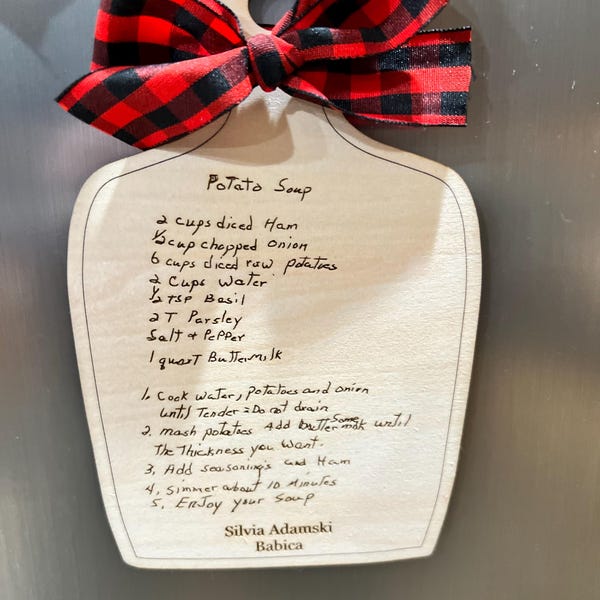 Potato Soup
2 cups diced Ham
1/2 cup chopped onion
6 cups diced raw potatoes
2 Cups Water
1/2 TSP Basil
2 T Parsley
Salt + Pepper
1 quart Buttermilk
1. Cook water, potatoes and onion
until Tender = Do not drain
2. mash potatoes Add Some buttermilk until
The Thickness you Want.
3, Add seasonings and Ham
4, Simmer about 10 minutes
5, Enjoy your Soup
Silvia Adamski
Babica